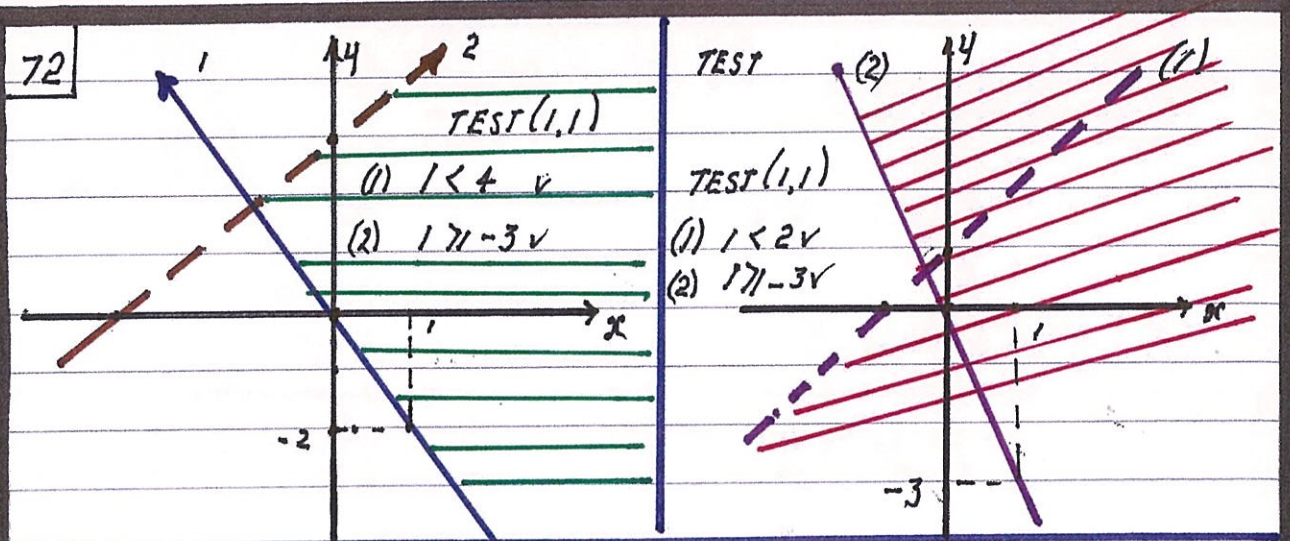 72
1
y
2
TEST (1,1)
(1) 1 < 4 v
(2) 1 ⩾ -3 v
x
1
-2
TEST
(2)
y
(1)
TEST (1,1)
(1) 1 < 2 v
(2) 1 ⩾ -3 v
x
1
-3